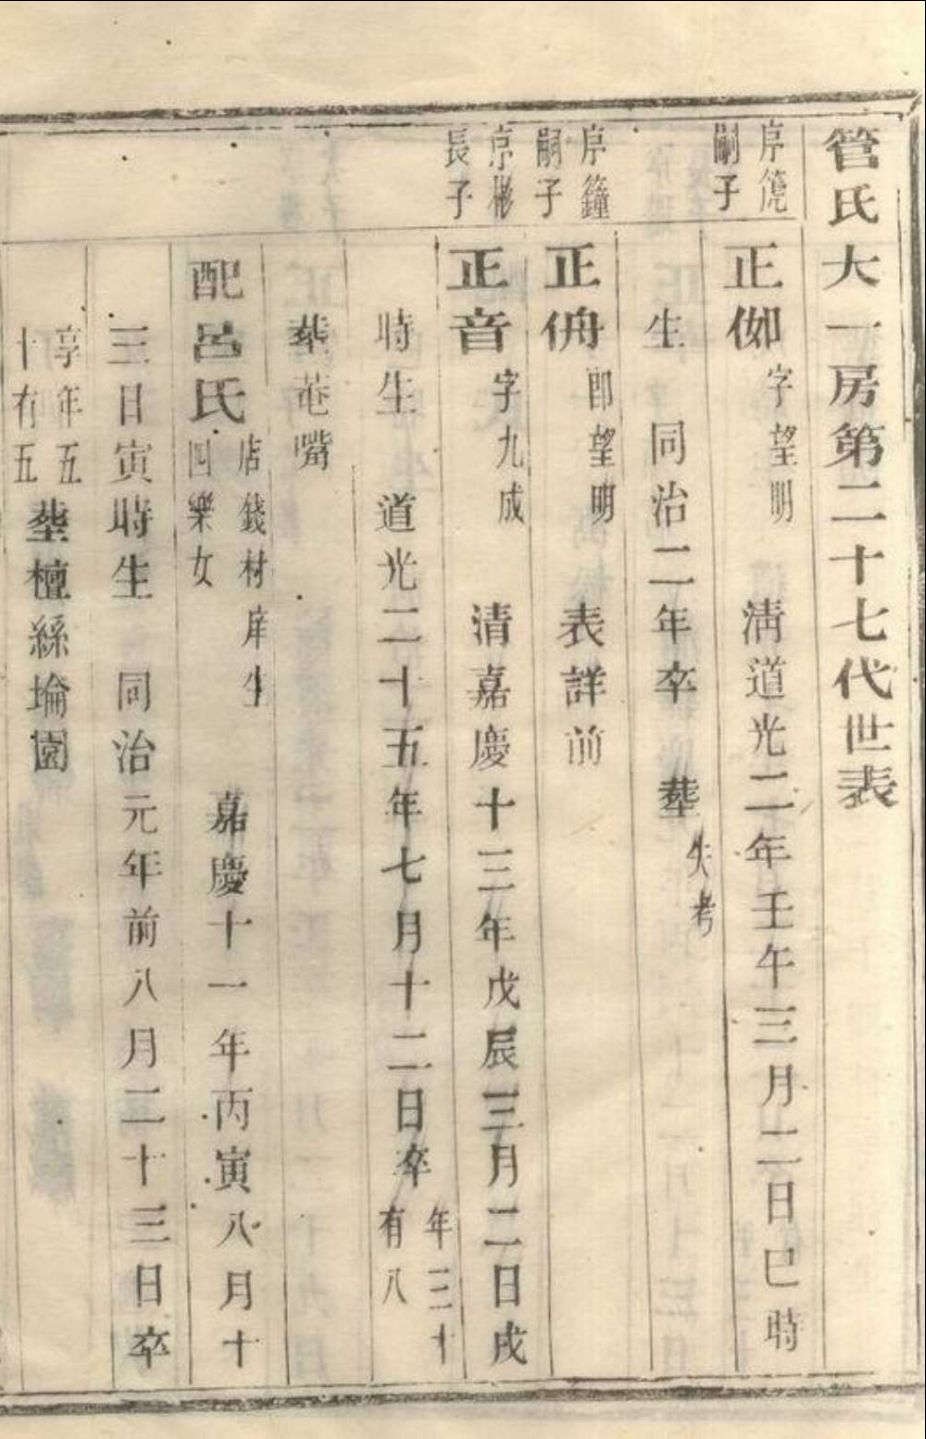 管氏大一房第二十七代世表
序箎
嗣子
正㑚字望明 清道光二年壬午三月二日巳時
生 同治二年卒 塟失考
序鐘
嗣子
正侢即望明 表詳前
序彬
長子
正音字九成 清嘉慶十三年戊辰三月二日戌
時生 道光二十五年七月十二日卒年三十
有八
塟菴嘴
配呂氏店錢材庠生
四樂女
嘉慶十一年丙寅八月十
三日寅時生 同治元年前八月二十三日卒
享年五
十有五
塟檀絲埨園